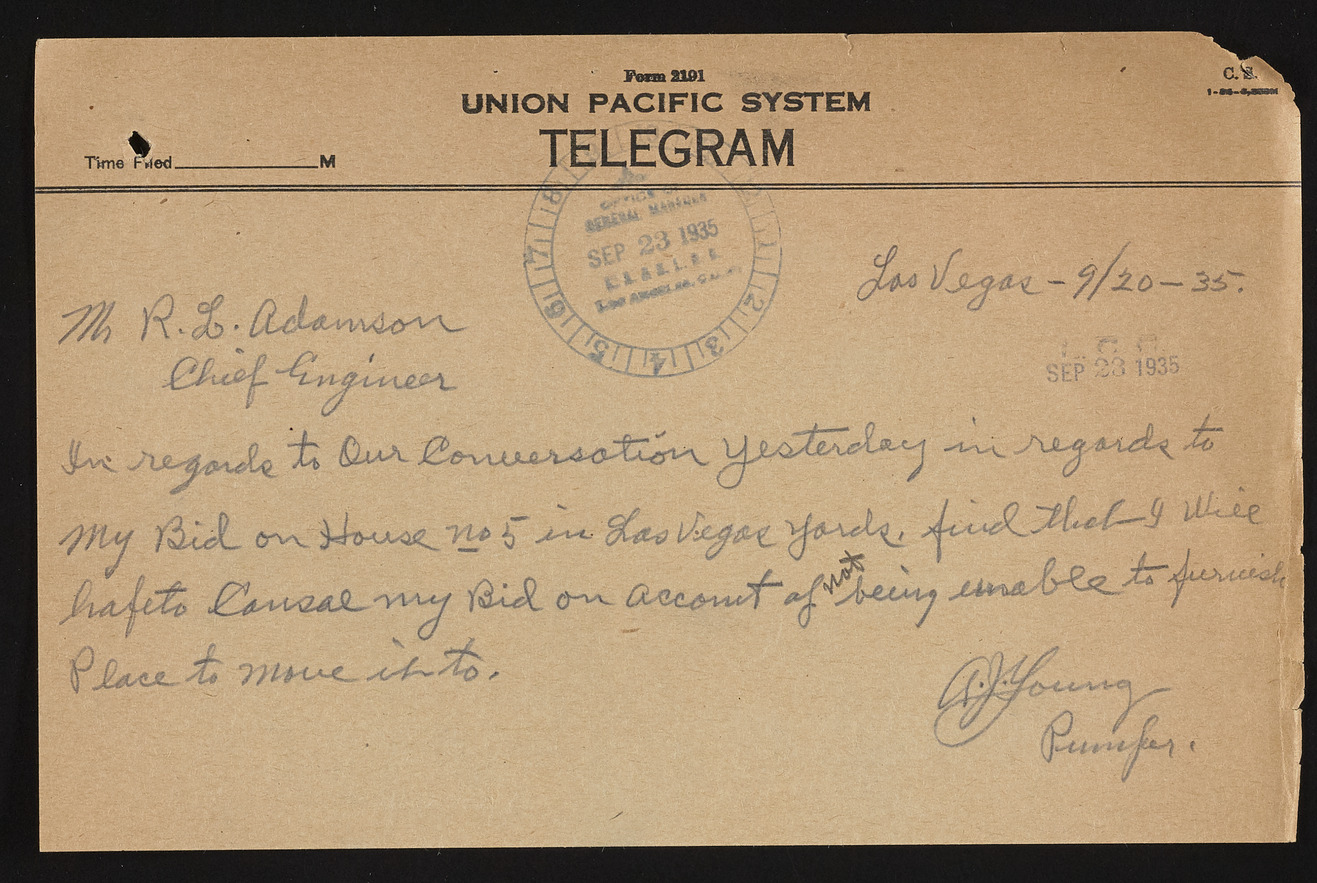 Form 2191
C. S.
UNION PACIFIC SYSTEM
TELEGRAM
Time Filed M
OFFICE OF
GENERAL MANAGER
SEP 23 1935
LOS ANGELES, CALIF.
8 7 6 5 4 3 2
Las Vegas - 9/20 - 35.
Mr R. L. Adamson
Chief Engineer
SEP 23 1935
In regards to Our Conversation Yesterday in regards to
My Bid on House no 5 in Las Vegas Yards. find that I Will
hafto Cansae my Bid on account of not being enable to furnish
Place to move it to.
A. J. Young
Pumper.